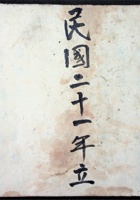 民國二十一年立